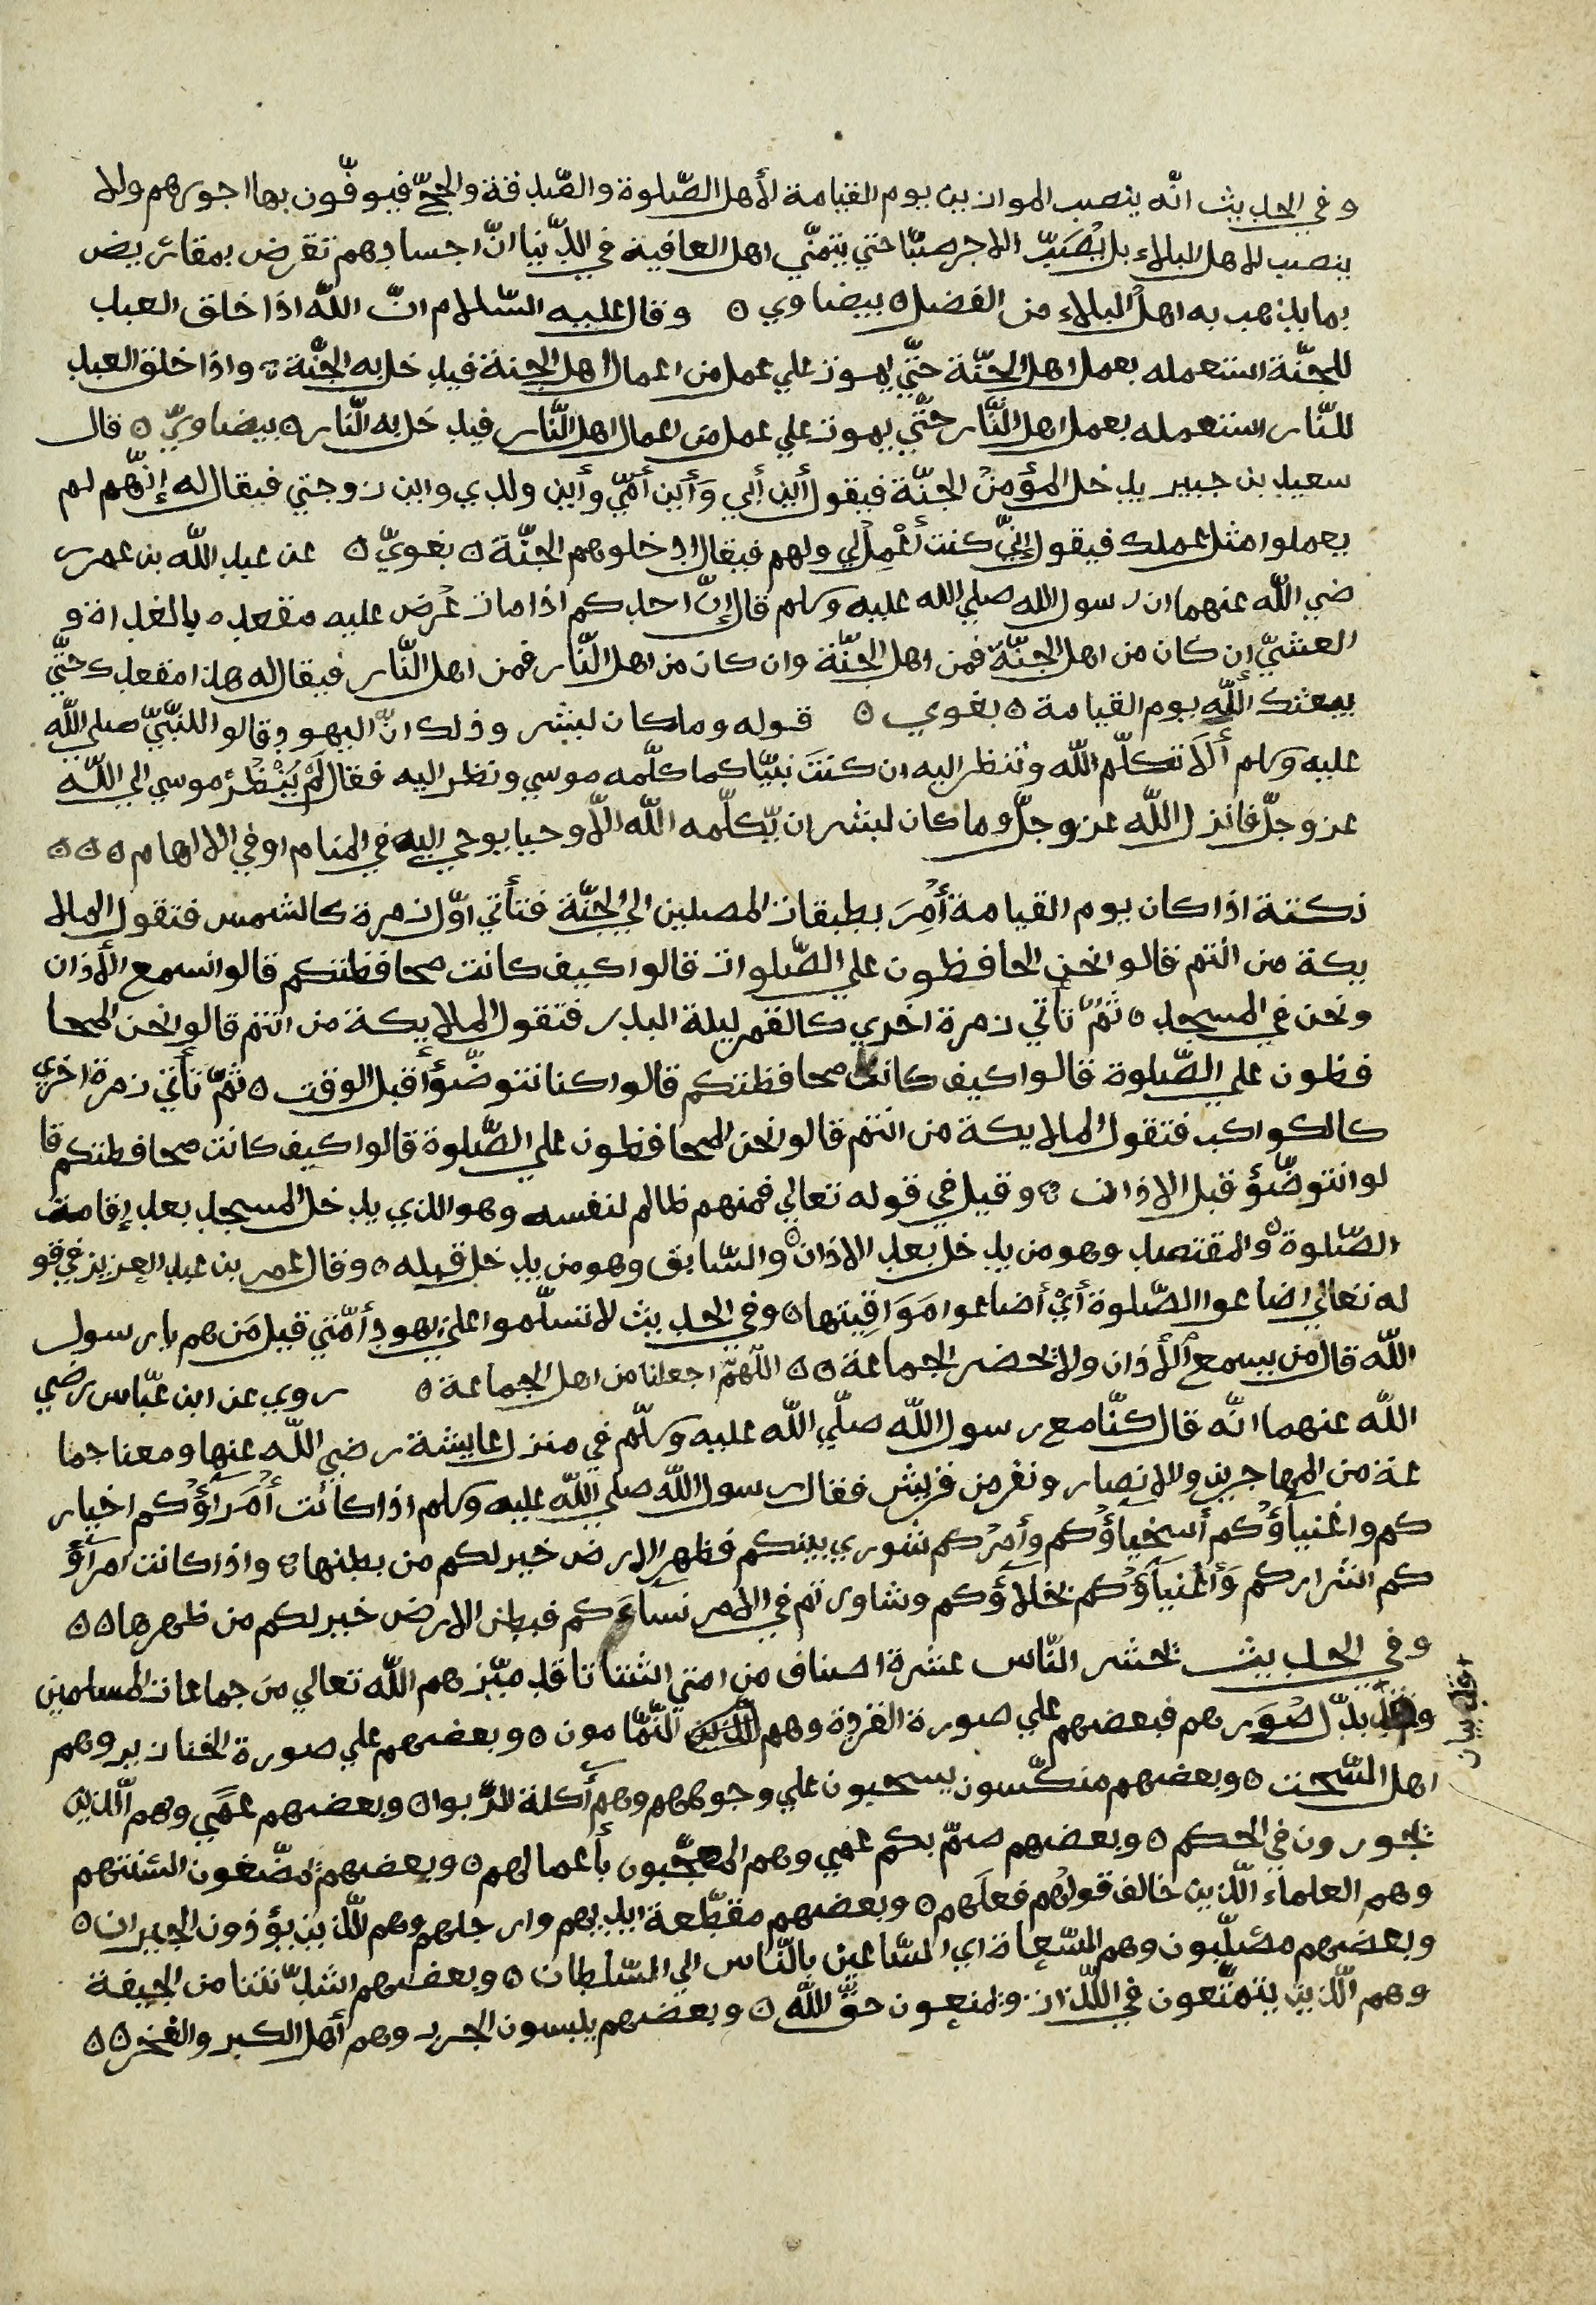 وفي الحديث انّه ينصب الموازين يوم القيامة لأهل الصّلوة والصّدقة والحجّ فيوفّون بها اجورهم ولا
ينصب لاهل البلاء بل يُصَبّ الاجر صبّا حتي يتمنّي اهل العافية في الدّنيا انّ اجسادهم تقرض بمقاريض
بما يذهب به اهل البلاء من الفضل ۵ بيضاوي ۵ وقال عليه السّلام انّ اللّه اذا خلق العبد
للجنّة استعمله بعمل اهل الجنّة حتّي يموت علي عمل من اعمال اهل الجنة فيدخل به الجنّة ۵ واذا خلق العبد
للنّار استعمله بعمل اهل النّار حتّي يموت علي عمل من اعمال اهل النّار فيدخل به النّار ۵ بيضاويّ ۵ قال
سعيد بن جبير يدخل المؤمنُ الجنّة فيقول أين أبي وَأَين أمّي وأين ولدي واين زوجتي فيقال له إنّهم لم
يعملوا مثل عملك فيقول إنّي كنت أعْمِلُ لي ولهم فيقال ادخلوهم الجنّة ۵ بغويّ ۵ عن عبد اللّه بن عمر ر
ضي اللّه عنهما ان رسول الله صلي الله عليه وسلم قال إنّ احدكم اذا مات عُرض عليه مقعده بالغداة و
العشيّ إن كان من اهل الجنّة فمن اهل الجنّة وان كان من اهل النّار فمن اهل النّار فيقال له هذا مقعدك حتّي
يبعثك اللّه يوم القيامة ۵ بغوي ۵ قوله وما كان لبشر وذلك انّ اليهود قالوا للنّبيّ صلي اللّه
عليه وسلم أَلَا تكلّم اللّه وتنظر اليه ان كنتَ نبيّا كما كلّمه موسي ونظر اليه فقال لَمْ يَنْظُرْ موسي الي اللّه
عز وجلّ فانزل اللّه عز وجلّ وما كان لبشر ان يّكلّمه اللّه الّا وحيا يوحي اليه في المنام او في الالهام ۵ ۵ ۵
نكتة اذا كان يوم القيامة أُمِرَ بطبقات المصلين الي الجنّة فتأتي اوّل زمرة كالشمس فتقول الملا
يكة من انتم قالوا نحن الحافظون علي الصّلوات قالوا كيف كانت محافظتكم قالوا نسمع الأذان
ونحن في المسجد ۵ ثمّ تاتي زمرة اخري كالقمر ليلة البدر فتقول الملايكة من انتم قالوا نحن المحا
فظون علي الصّلوة قالوا كيف كانت محافظتكم قالوا كنا نتوضّؤ أقبل الوقت ۵ ثمّ تأتي زمرة اخري
كالكواكب فتقول الملايكة من انتم قالوا نحن المحافظون علي الصّلوة قالوا كيف كانت محافظتكم قا
لوا نتوضّؤ قبل الاذان ۵ وقيل في قوله تعالي فمنهم ظالم لنفسه وهو الذي يدخل المسجد بعد إقامة
الصّلوة ۵ والمقتصد وهو من يدخل بعد الاذان ۵ والسّابق وهو من يدخل قبله ۵ وقال عمر بن عبد العزيز في قو
له تعالي اضاعوا الصّلوة أيْ أضاعوا مَوَاقِيتها ۵ وفي الحديث لا تسلّموا علي يهود أمّتي قيل مَن هم يا رسول
اللّه قال من يسمع الأذان ولا يحضر الجماعة ۵ ۵ اللّهمّ اجعلنا من اهل الجماعة ۵ روي عن ابن عبّاس رضي
اللّه عنهما انّه قال كنّا مع رسول اللّه صلّي اللّه عليه وسلّم في منزل عايشة رضي اللّه عنها ومعنا جما
عة من المهاجرين والانصار ونفر من قريش فقال رسول اللّه صلي اللّه عليه وسلم اذا كانت أُمَرآؤكم اخيار
كم واغنيآؤكم أسخياؤكم وأمرُكم شوري بينكم فظهر الارض خير لكم من بطنها ۵ واذا كانت امرآؤ
كم اشراركم وَأغنيآؤكم بخلاؤكم وشاورتم في الامر نسآءَكم فبطن الارض خير لكم من ظهرها ۵ ۵
وفي الحديث يحشر النّاس عشرة اصناف من امتي اشتاتا قد ميّزهم اللّه تعالي من جماعات المسلمين
بدّل صُوَرهم فبعضهم علي صورة القردة وهم النّمّامون ۵ وبعضهم علي صورة الخنازير وهم
اهل السّحت ۵ وبعضهم منكّسون يسحبون علي وجوههم وهم أكلة الرّبوا ۵ وبعضهم عمْي وهم الّذين
يجورون في الحكم ۵ وبعضهم صمّ بكم عمي وهم المعجّبون بأعمالهم ۵ وبعضهم يمضّغون السنتهم
وهم العلماء الّذين خالف قولُهم فعلَهم ۵ وبعضهم مقطّعة ايديهم وارجلهم وهم الّذين يؤذون الجيران ۵
وبعضهم مصلّبون وهم السّعاة اي السّاعين بالنّاس الي السّلطان ۵ وبعضهم اشدّ نتنا من الجيفة
وهم الّذين يتمتّعون في اللّذات ويمنعون حقّ اللّه ۵ وبعضهم يلبسون الجرر وهم أهل الكبر والفخر ۵ ۵